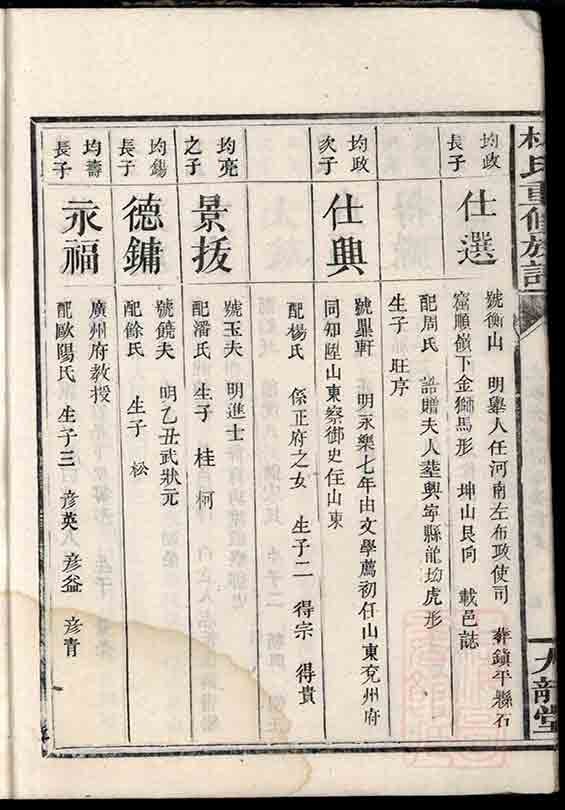 林氏重修族譜
九龍堂
均政
長子
仕選
號衡山 明舉人任河南左布政使司 葬鎮平縣石
窟順嶺下金獅馬形 坤山艮向 載邑誌
配周氏 誥贈夫人塟興寧縣龍坋虎形
生子 旺序
均政
次子
仕興
號鼎軒 明永樂七年由文學薦初任山東兗州府
同知陞山東察御史住山東
配楊氏 係正府之女 生子二 得宗 得貴
均亮
之子
景拔
號玉夫 明進士
配潘氏 生子 桂 柯
均錫
長子
德鏞
號鐃夫 明乙丑武狀元
配餘氏 生子 松
均壽
長子
永福
廣州府教授
配歐陽氏 生子三 彥英 彥益 彥青